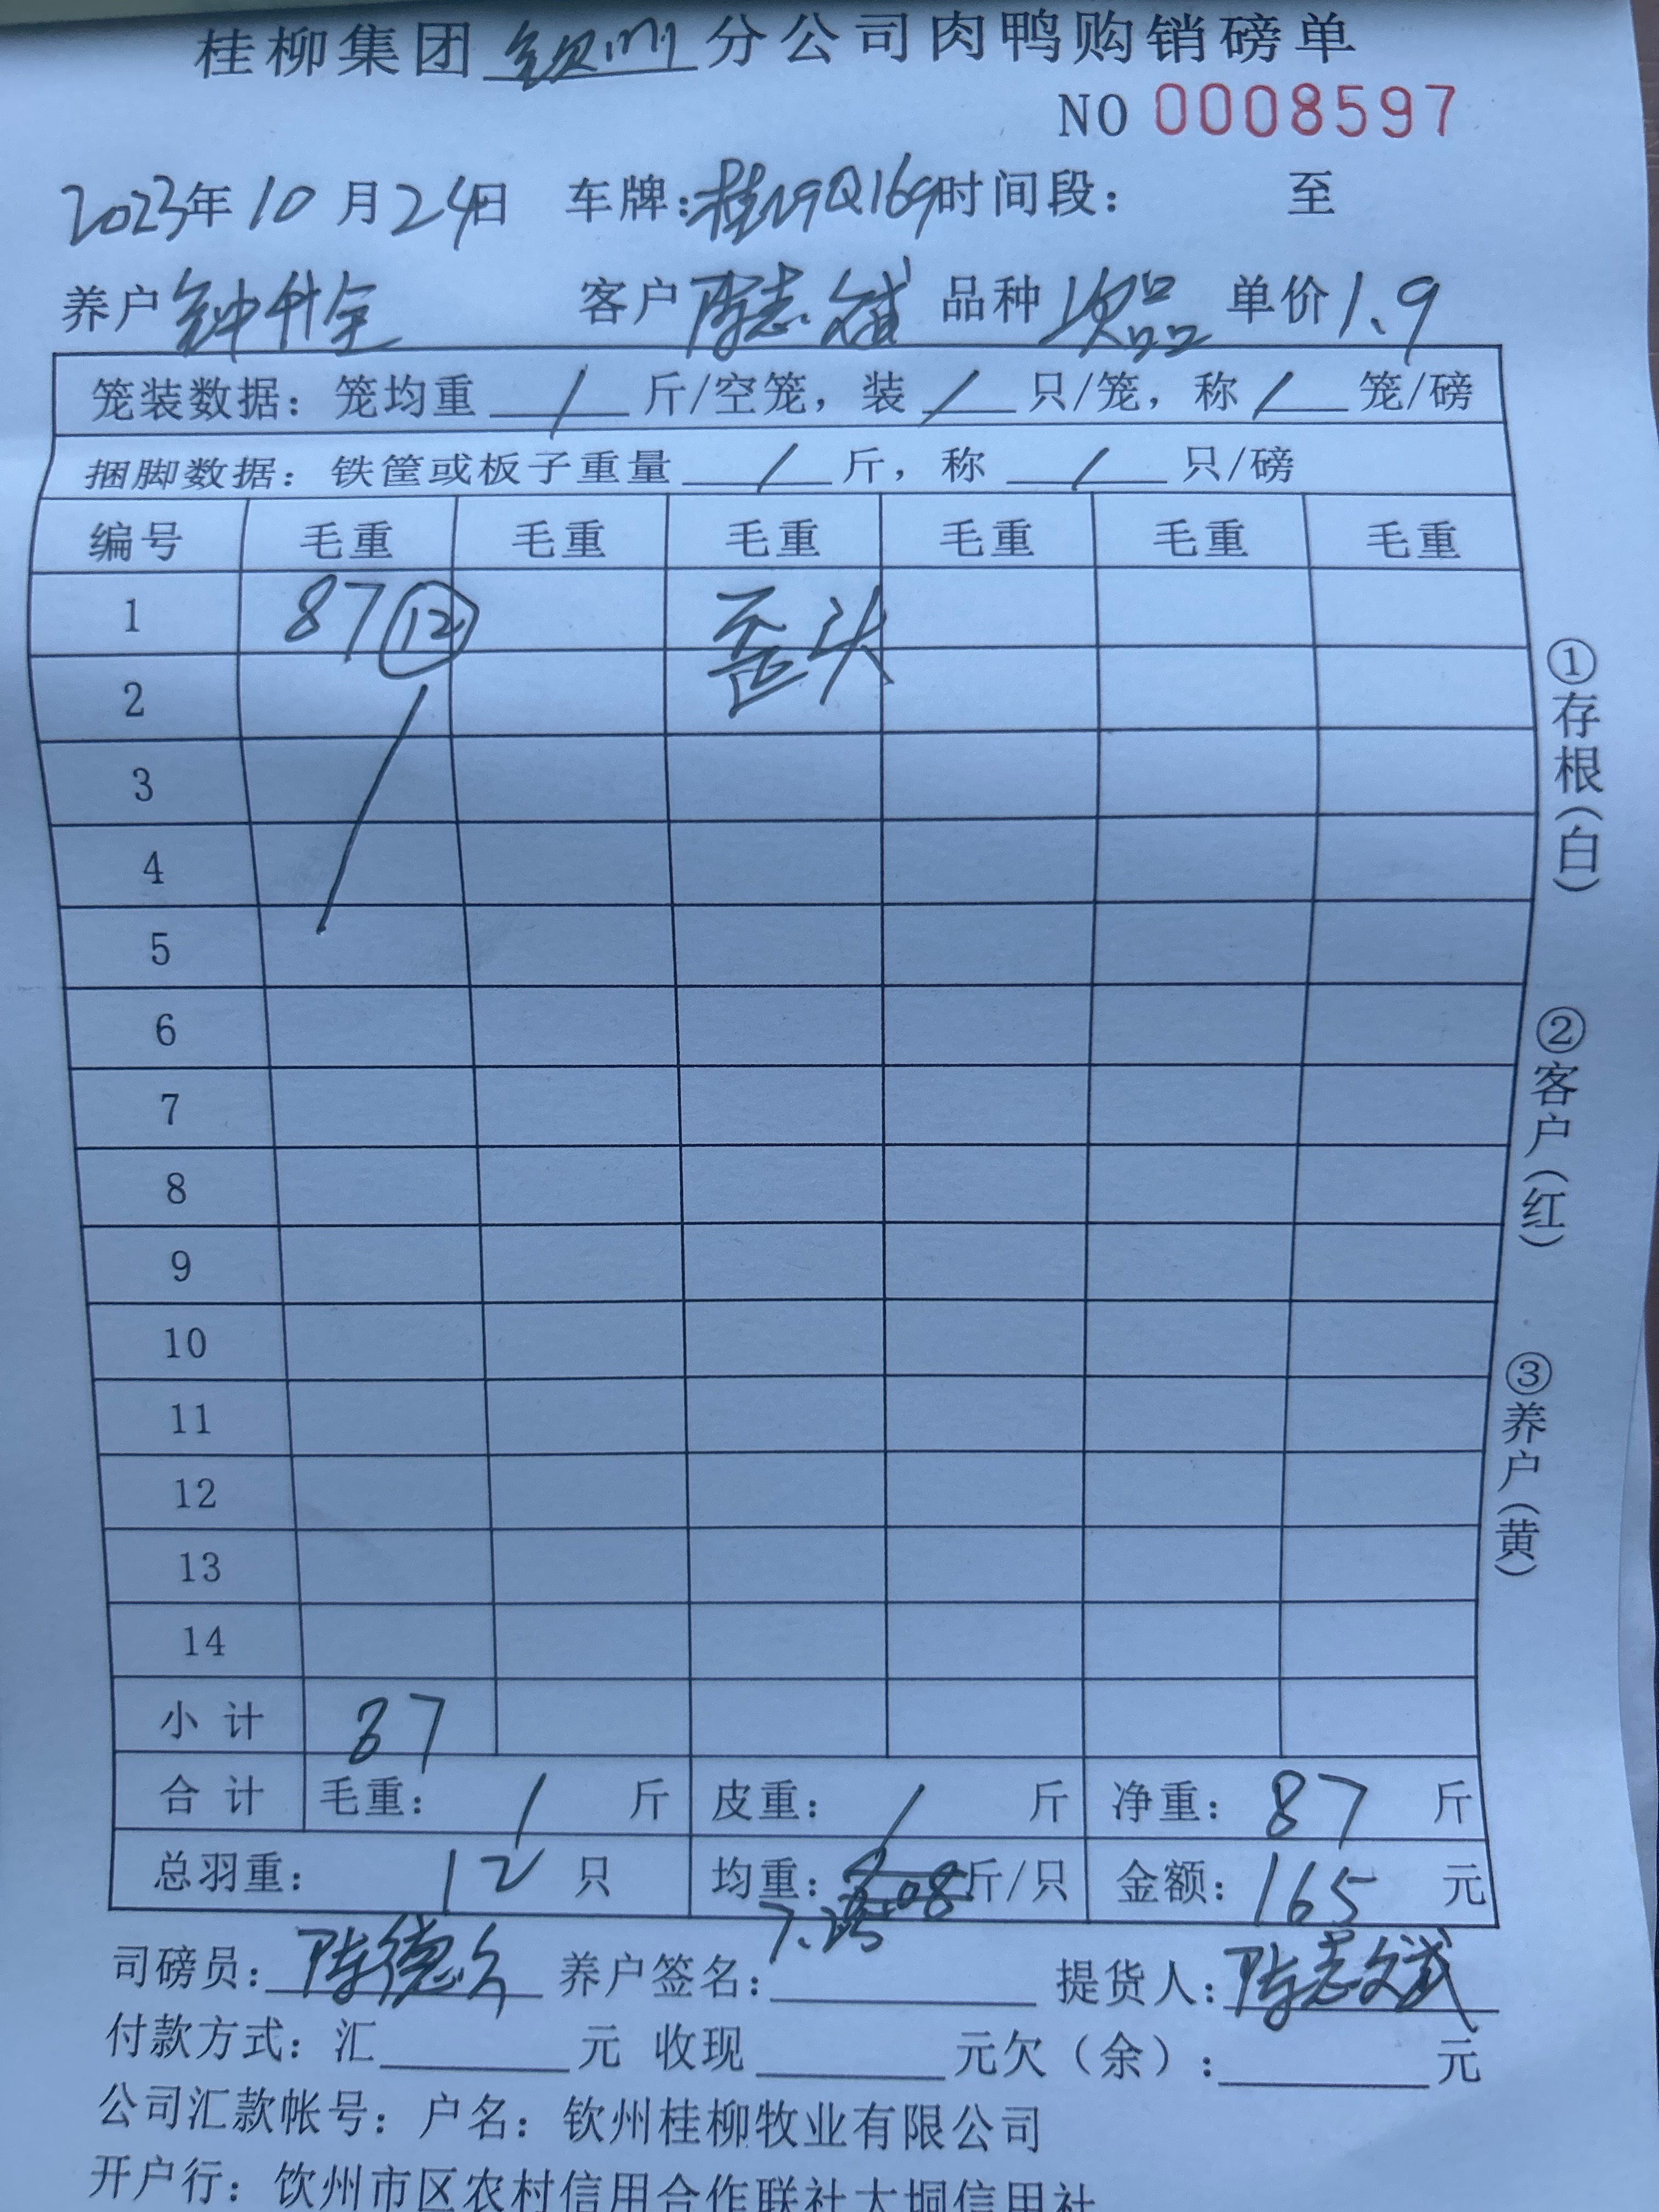 桂柳集团钦州分公司肉鸭购销磅单
NO 0008597
2023年10月24日 车牌:桂N9Q169时间段: 至
养户钟升全 客户陈志斌 品种次品 单价1.9
笼装数据: 笼均重 / 斤/空笼, 装 / 只/笼, 称 / 笼/磅
捆脚数据: 铁筐或板子重量 / 斤, 称 / 只/磅
编号 毛重 毛重 毛重 毛重 毛重 毛重
1 87 ⑫ 歪头
2
3
4
5
6
7
8
9
10
11
12
13
14
小计 87
合计 毛重: / 斤 皮重: / 斤 净重: 87 斤
总羽重: 12 只 均重: 7.25 斤/只 金额: 165 元
司磅员: 陈德久 养户签名: 提货人: 陈志斌
付款方式: 汇 元 收现 元欠(余): 元
公司汇款帐号: 户名: 钦州桂柳牧业有限公司
开户行: 钦州市区农村信用合作联社大垌信用社
①存根(白)
②客户(红)
③养户(黄)